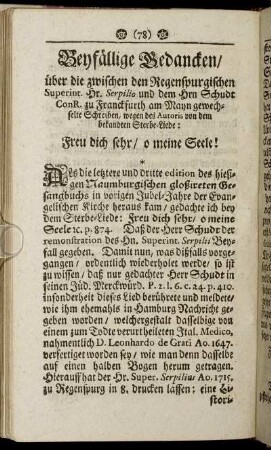 (78)
Beyfällige Gedancken/
über die zwischen den Regenspurgischen
Superint. Hr. Serpilio und dem Hrn Schudt
ConR. zu Franckfurth am Mayn gewech-
selte Schreiben, wegen des Autoris von dem
bekandten Sterbe-Liede:
Freu dich sehr/ o meine Seele!
*
Als die letztere und dritte edition des hiesi-
gen Naumburgischen glosireten Ge-
sangbuchs in vorigen Jubel-Jahre der Evan-
gelischen Kirche heraus kam/ gedachte ich bey
dem Sterbe-Liede: Freu dich sehr/ o meine
Seele ꝛc. p. 874. Daß der Herr Schudt der
remonstration des Hn. Superint. Serpilii Bey-
fall gegeben. Damit nun, was dißfalls vorge-
gangen/ ordentlich wiederholet werde/ so ist
zu wissen/ daß nur gedachter Herr Schudt in
seinen Jüd. Merckwürd. P. 2. l. 6. c. 24. p. 410.
insonderheit dieses Lied berührete und meldete/
wie ihm ehemahls in Hamburg Nachricht ge-
geben worden/ welchergestalt dasselbige von
einem zum Todte verurtheileten Ital. Medico,
nahmentlich D. Leonhardo de Grati Ao. 1647.
verfertiget worden sey/ wie man denn dasselbe
auf einen halben Bogen herum getragen.
Hierauf hat der Hr. Super. Serpilius Ao. 1715.
zu Regenspurg in 8. drucken lassen: eine Hi-
stori-